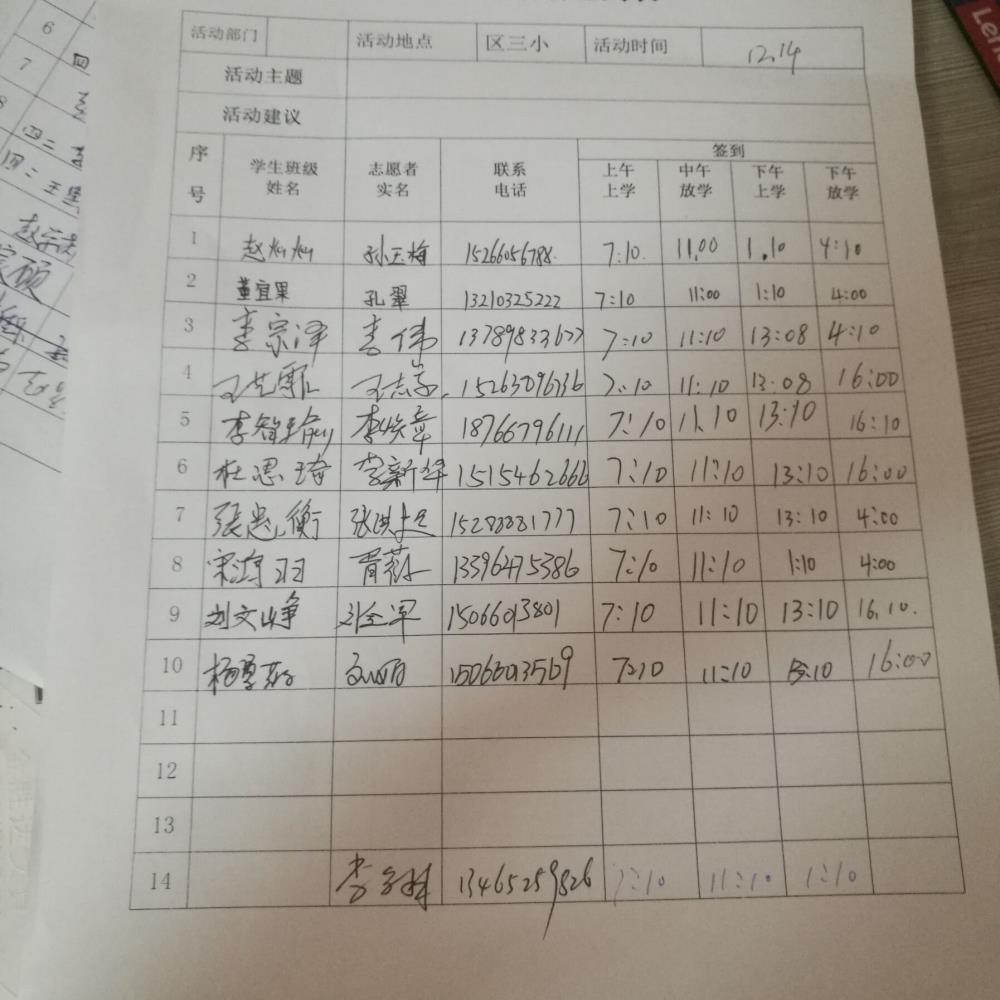 活动部门 活动地点 区三小 活动时间 12.14
活动主题
活动建议
序号 学生班级姓名 志愿者实名 联系电话 签到
上午上学 中午放学 下午上学 下午放学
1 赵 孙玉梅 15266056788. 7:10. 11.00 1.10 4:10
2 董宜果 孔翠 13210325222 7:10 11:00 1:10 4:00
3 李宗泽 李伟 13789833677 7:10 11:10 13:08 4:10
4 王志 15263096736 7:10 11:10 13:08 16:00
5 李智瑜 李 18766796111 7:10 11:10 13:10 16:10
6 杜思琦 李新华 1515462666 7:10 11:10 13:10 16:00
7 张忠衡 张洪 7:10 11:10 13:10 4:00
8 宋鸿羽 13396475386 7:10 11:10 1:10 4:00
9 刘文峥 刘全军 15066013801 7:10 11:10 13:10 16.10.
10 杨 15066013509 7:10 11:10 13:10 16:00
11
12
13
14 李 13465259826 7:10 11:10 1:10
6
7 四
8 四二
四二王
Len